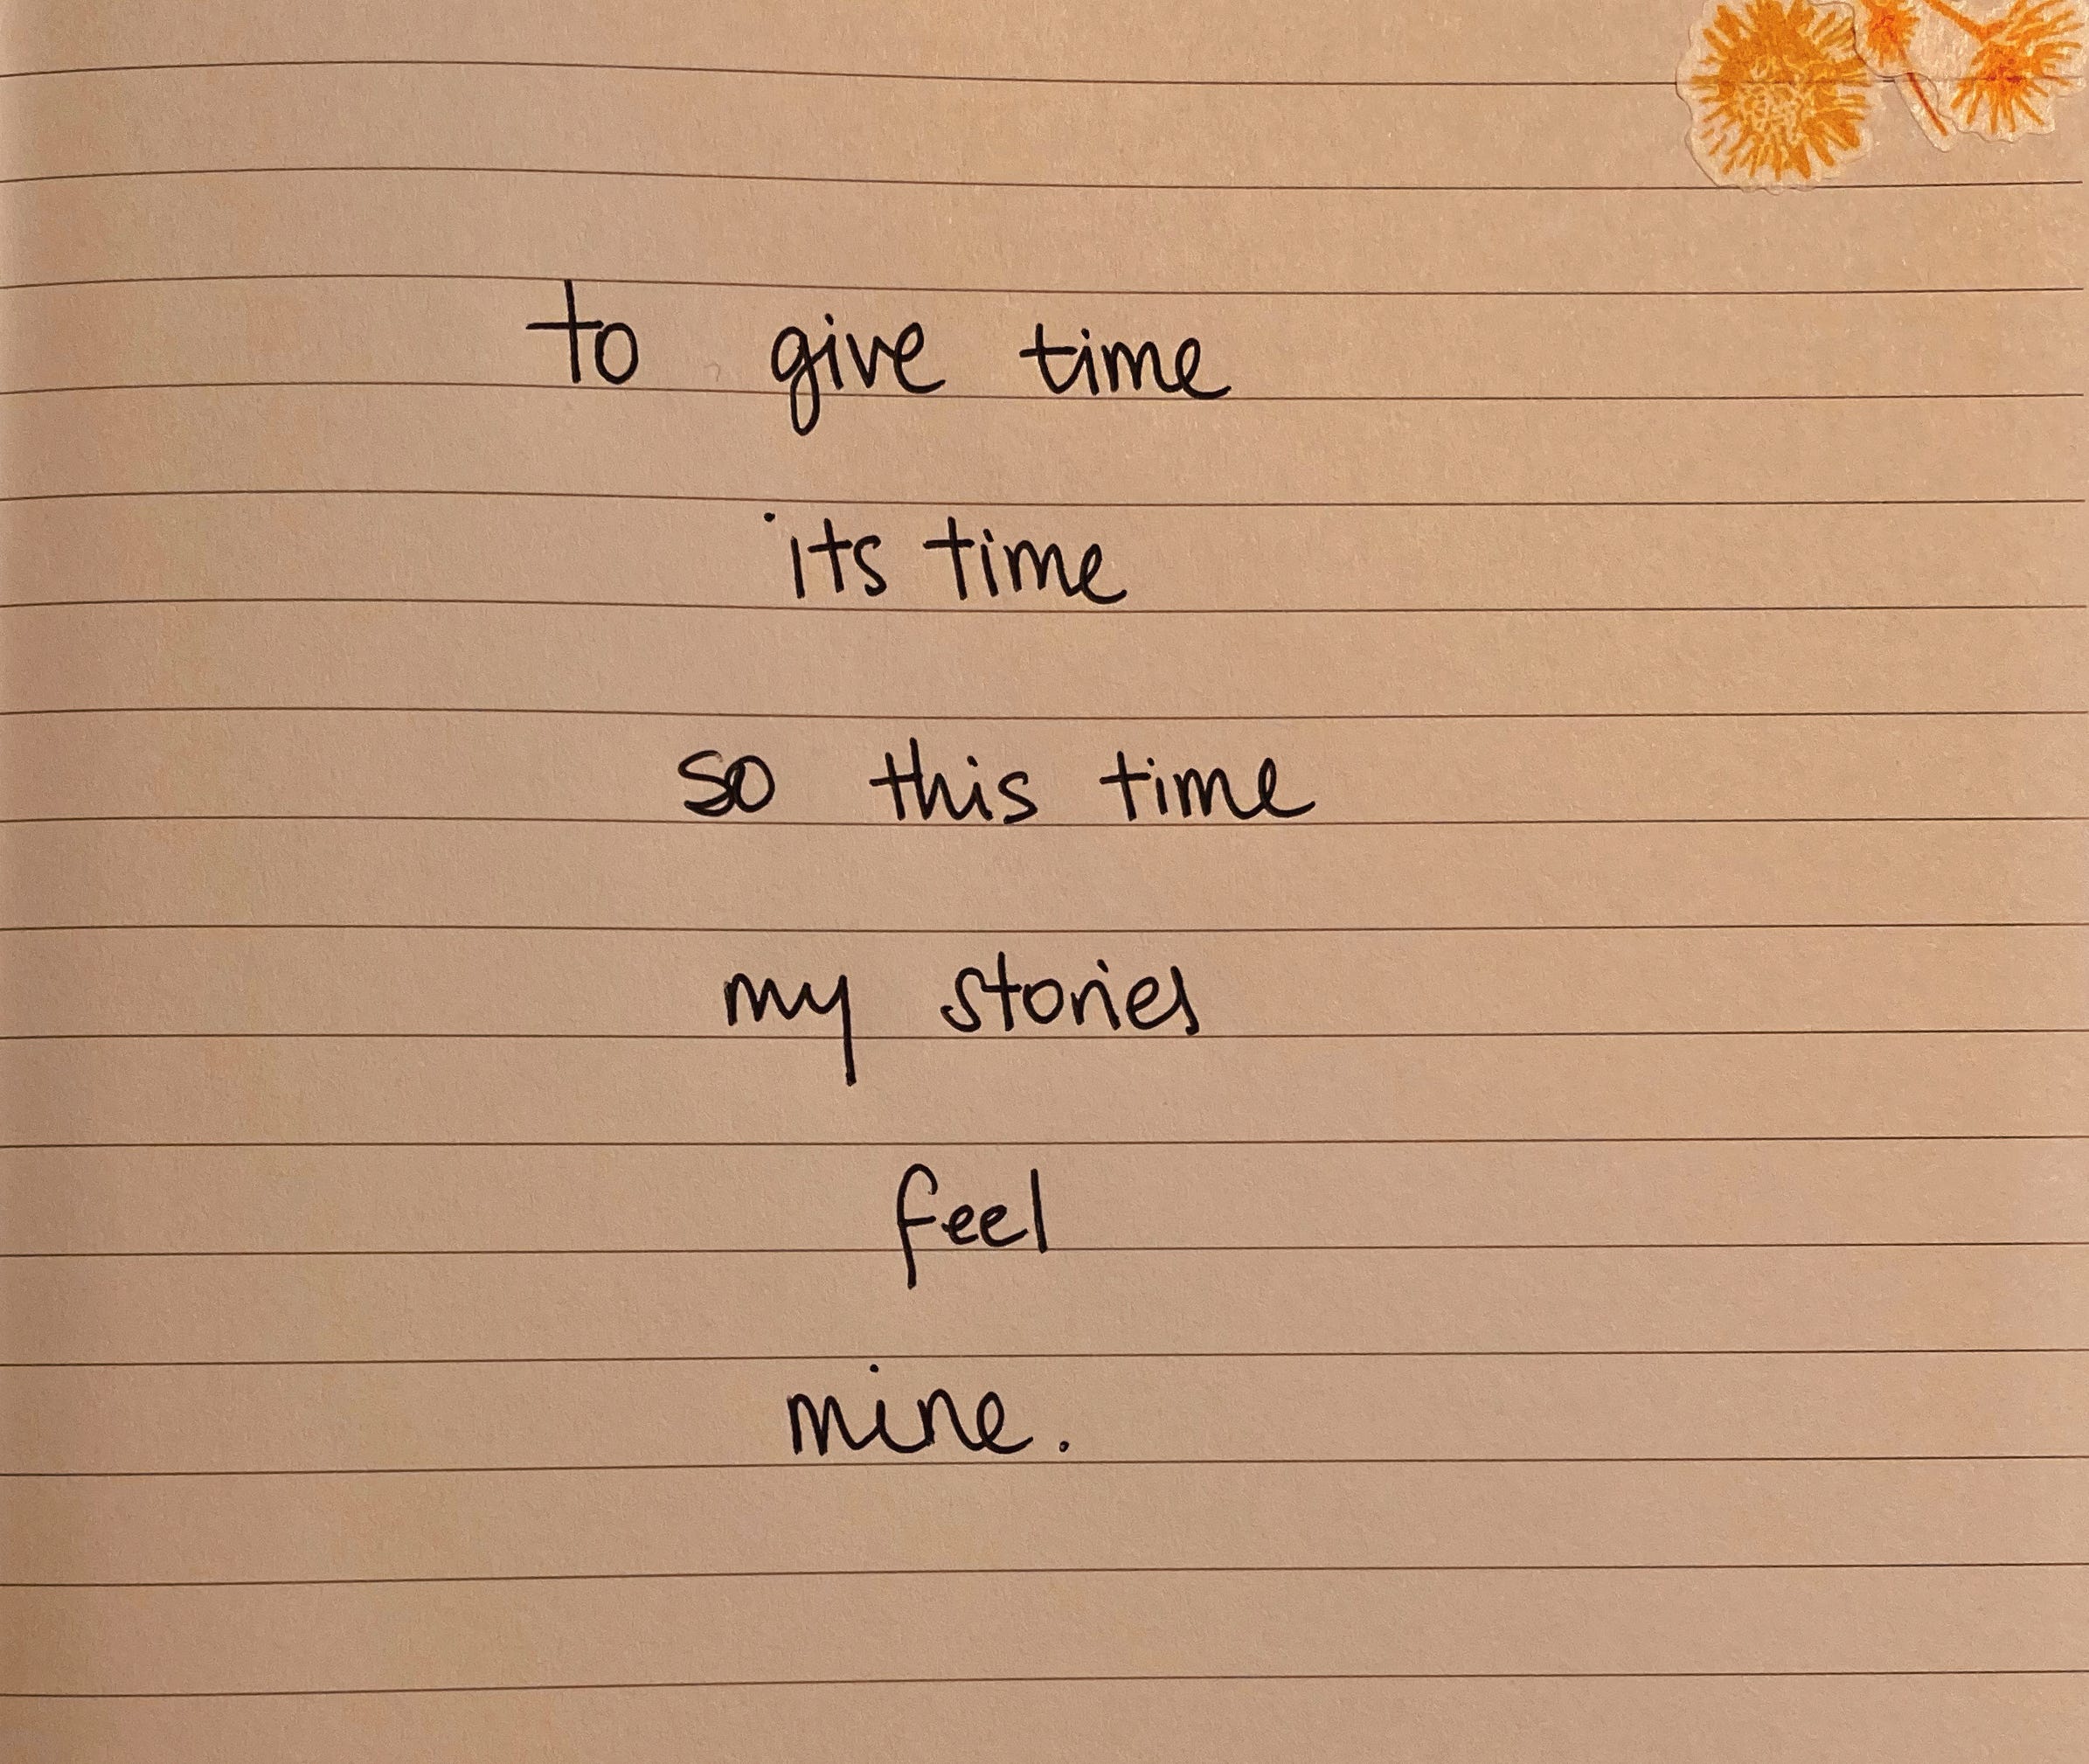 to give time
its time
so this time
my stories
feel
mine.